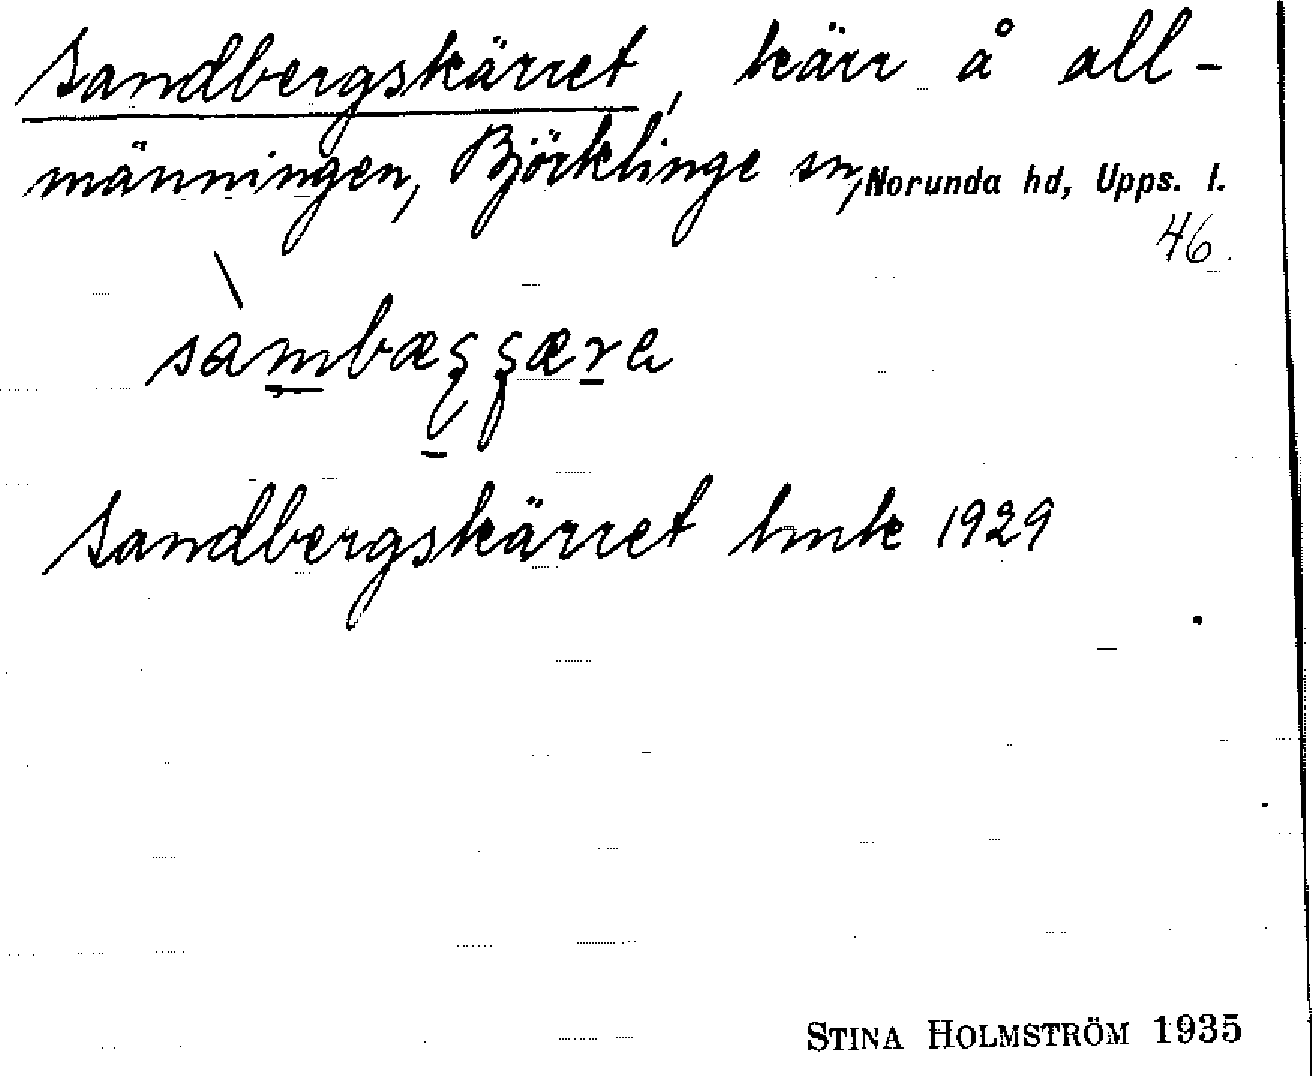 Sandbergskärret, kärr å all-
männingen, Björklinge sn, Norunda hd, Upps. l.
46.
Sandbergskärret hmk 1929
STINA HOLMSTRÖM 1935